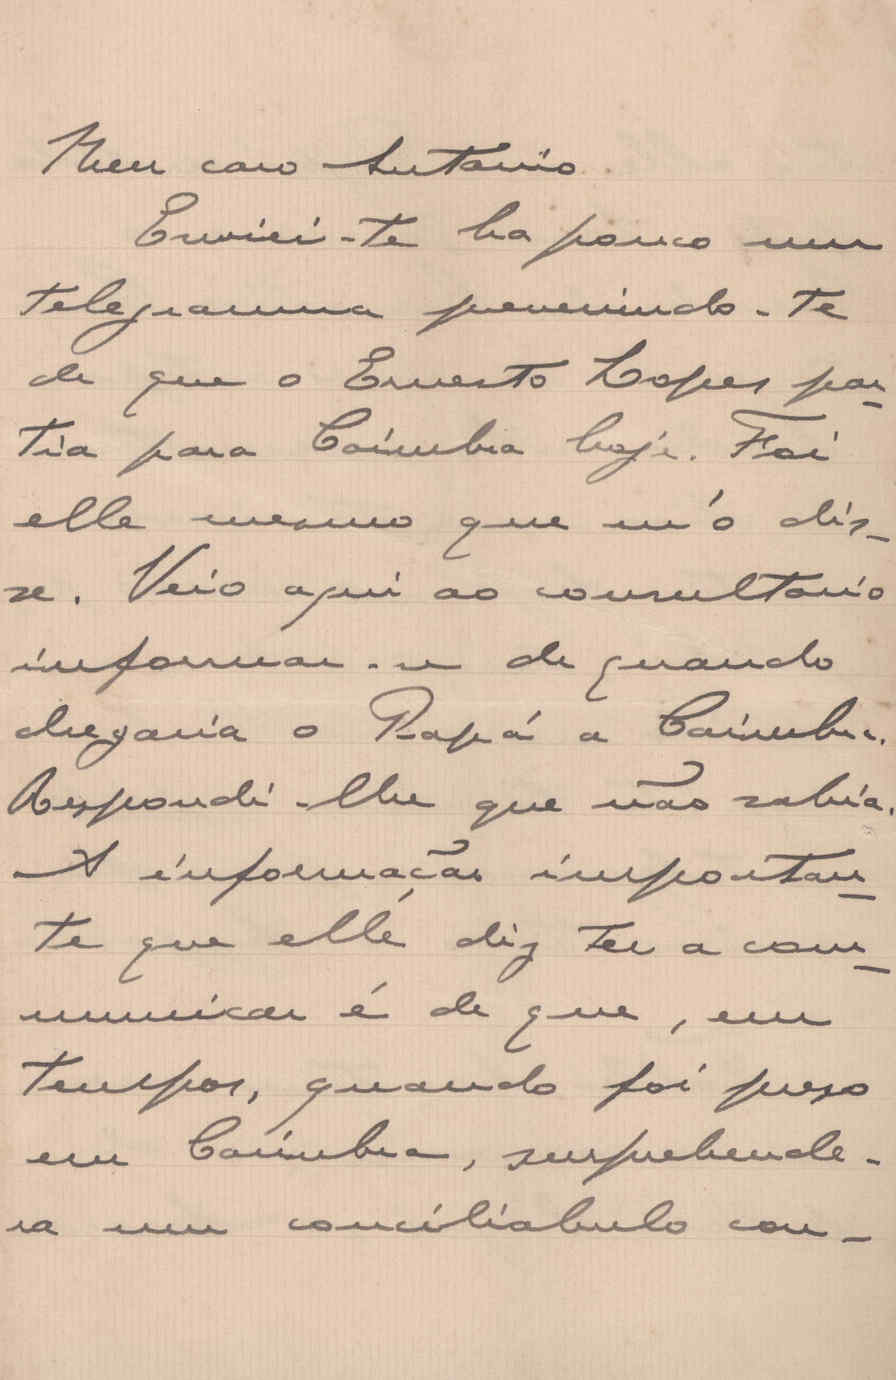 Meu caro Antonio.
Enviei-te ha pouco um
telegramma prevenindo-te
de que o Ernesto Lopes par-
tia para Coimbra hoje. Foi
elle mesmo que m'o dis-
se. Veio aqui ao consultorio
informar-se de quando
chegaria o Papá a Coimbra.
Respondi-lhe que não sabia.
A informação importan-
te que elle diz ter a com-
municar é de que, em
tempos, quando foi preso
em Coimbra, surprehende-
ra um conciliabulo con-